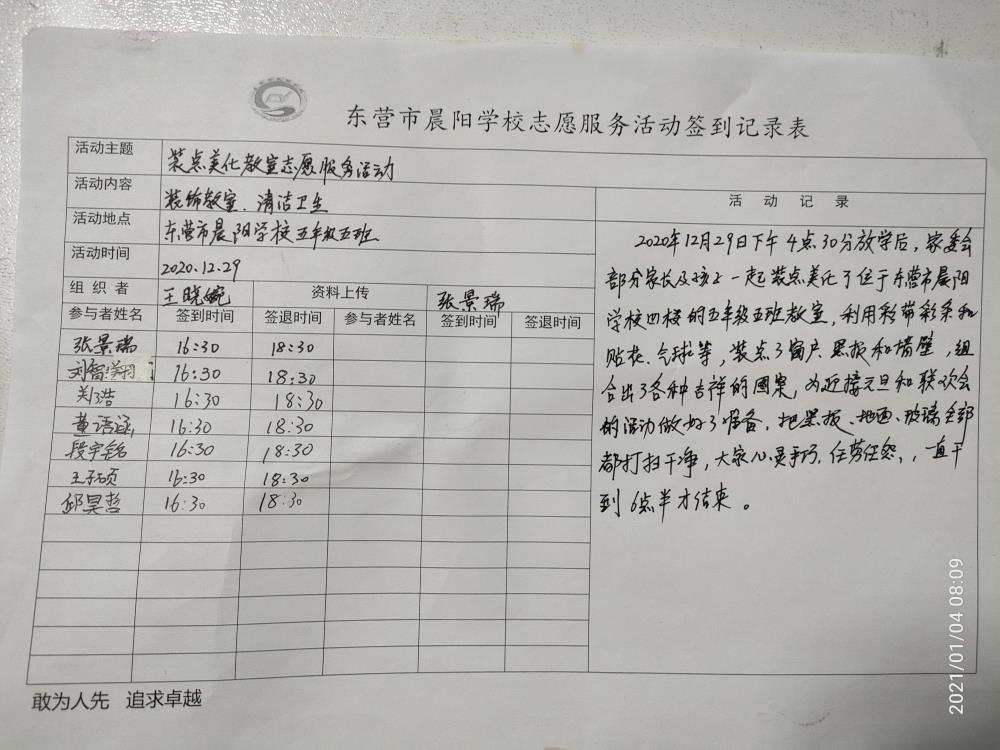 东营市晨阳学校志愿服务活动签到记录表
活动主题 装点美化教室志愿服务活动
活动内容 装饰教室、清洁卫生
活动地点 东营市晨阳学校五年级五班
活动时间 2020.12.29
组织者 王晓婉 资料上传 张景瑞
参与者姓名 签到时间 签退时间 参与者姓名 签到时间 签退时间
张景瑞 16:30 18:30
刘智翔 16:30 18:30
关浩 16:30 18:30
董语涵 16:30 18:30
段宇铭 16:30 18:30
王子硕 16:30 18:30
邱昊哲 16:30 18:30
活动记录
2020年12月29日下午4点30分放学后,家委会
部分家长及孩子一起装点美化了位于东营市晨阳
学校四楼的五年级五班教室,利用彩带彩条和
贴花、气球等,装点了窗户、黑板和墙壁,组
合出了各种吉祥的图案,为迎接元旦和联欢会
的活动做好了准备,把黑板、地面、玻璃全部
都打扫干净,大家心灵手巧,任劳任怨,一直干
到6点半才结束。
敢为人先 追求卓越
2021/01/04 08:09